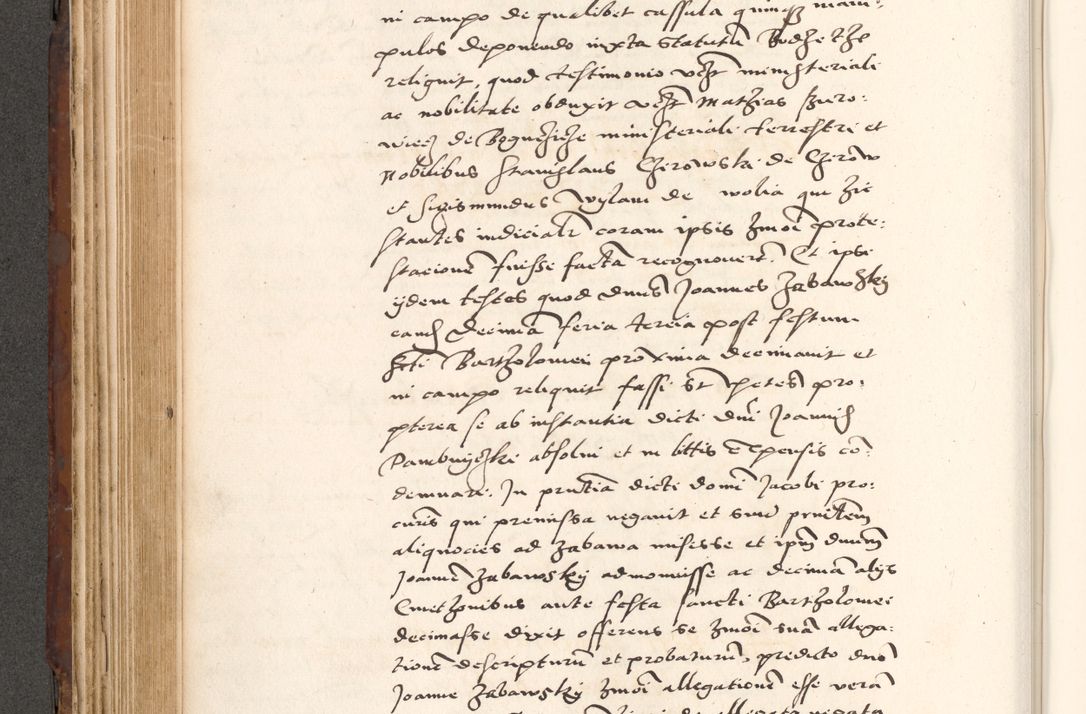 in campo de qualibet cassula quinq[ue] mani-
pulos deponendo iuxta statutu[m] Bodzethe
reliquit, quod testimonio ministeriali
ac nobilitate obduxit Mathias
de ministeriali terrestri et
Nobilibus Stanislaus Czirowski de Czirow
et Sigismundus Wylam de wolia qui hic
stantes iudicialr coram ipsis hmoi prote-
stacione[m] fuisse facta[m] recognouert. Et ipsi
ijdem testes quod dnus Joannes Zabawszky
eand[em] decima[m] feria tercia post festum
Scti Bartholomei proxima decimauit et
in campo reliquit fassi st petes pro-
pterea se ab instantia dicti dni Joannis
absolui et in littis expensis co-
demnari. In pntia dicti domi Jacobi pro-
curis qui premissa negauit et
aliquocies ad Zabawa misisse et ipm dnum
Joanne[m] Zabawsky admonuisse ac decima[m] alijs
Cmethonibus ante festa sancti Bartholomei
decimasse dixit offerens se hmoi sua[m] allega-
tione[m] descripturu[m] et probaturu[m], predicto dno
Joanne Zabawsky hmoi allegatione[m] esse vera[m]
allegata negata